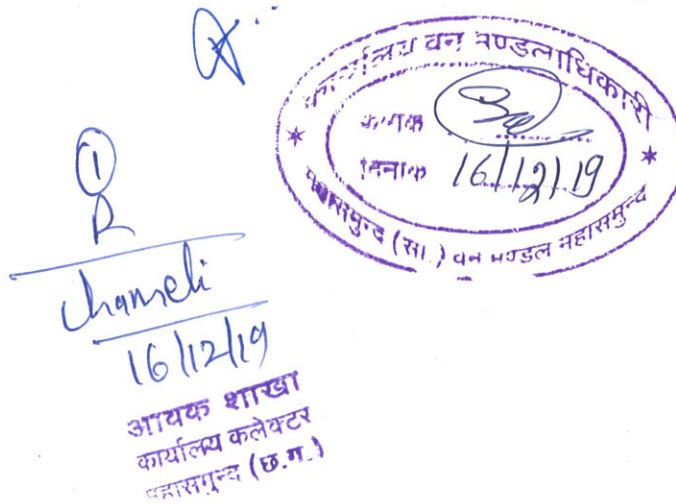 कार्यालय वन मण्डलाधिकारी
क्रमांक
दिनांक 16/12/19
महासमुन्द (सा.) वन मण्डल महासमुन्द
1
R
Chameli
16/12/19
आवक शाखा
कार्यालय कलेक्टर
महासमुन्द (छ.ग.)